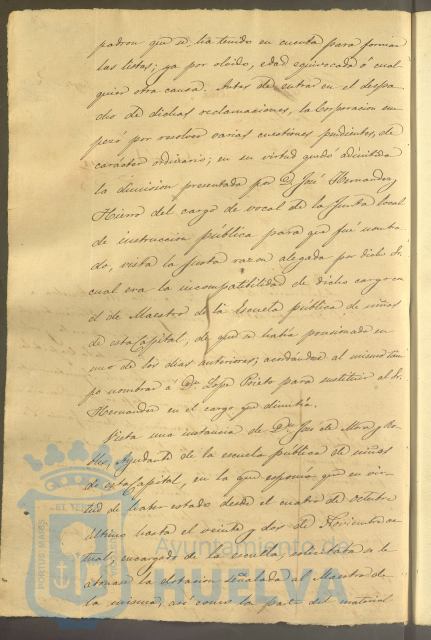 padron que se ha tenido en cuenta para formar
las listas; ya por olvido, edad equivocada ó cual
quier otra causa. Antes de entrar en el despa
cho de dichas reclamaciones, la Corporacion em
pezó por resolver varias cuestiones pendientes, de
carácter ordinario; en su virtud quedó admitida
la dimision presentada por D. José Hernandez
Hierro del cargo de vocal de la Junta local
de instruccion pública para que fué nombra
do, vista la justa razon alegada por dicho Sr.
cual era la incompatibilidad de dicho cargo con
el de Maestro de la Escuela pública de niños
de esta Capital, de que se habia posesionado en
uno de los dias anteriores; acordándose al mismo tiem
po nombrar á Dn. Lope Prieto para sustituir al Sr.
Hernandez en el cargo que dimitía.
Vista una instancia de Dn. José de Mora y
Ayudante de la escuela pública de niños
de esta Capital, en la que esponía que en vir
tud de haber estado desde el cuatro de Octubre
último hasta el veinte y dos de Noviembre ac
tual, encargado de la escuela, solicitaba se le
abonase la dotacion señalada al Maestro de
la misma, así como la parte del material
Ayuntamiento de
HUELVA
PORTUS MARIS